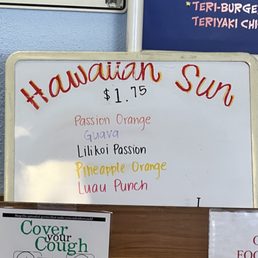 TERI-BURGE
TERIYAKI CHI
Hawaiian Sun
$1.75
Passion Orange
Guava
Lilikoi Passion
Pineapple Orange
Luau Punch
Cover
your
Cough